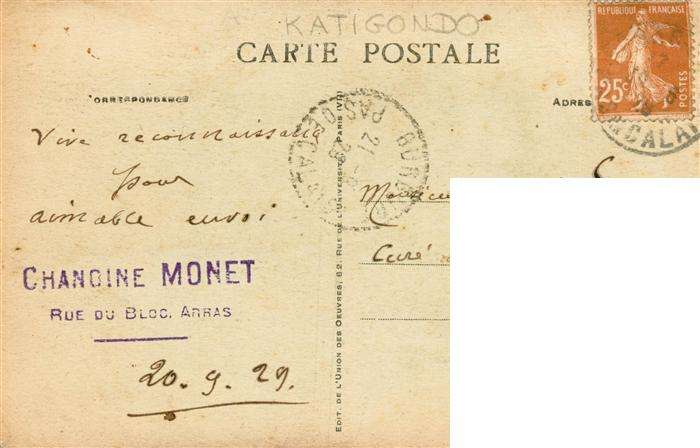 KATIGONDO
CARTE POSTALE
CORRESPONDANCE
Vive reconnaissance
pour
aimable envoi
CHANOINE MONET
RUE DU BLOC. ARRAS
20.9.29.
EDIT. DE L'UNION DES OEUVRES, 82, RUE DE L'UNIVERSITÉ, PARIS (VII)
PAS DE CALAIS
21
29
ADRES
REPUBLIQUE FRANÇAISE
25c
POSTES
CALA
Monsieur
Curé